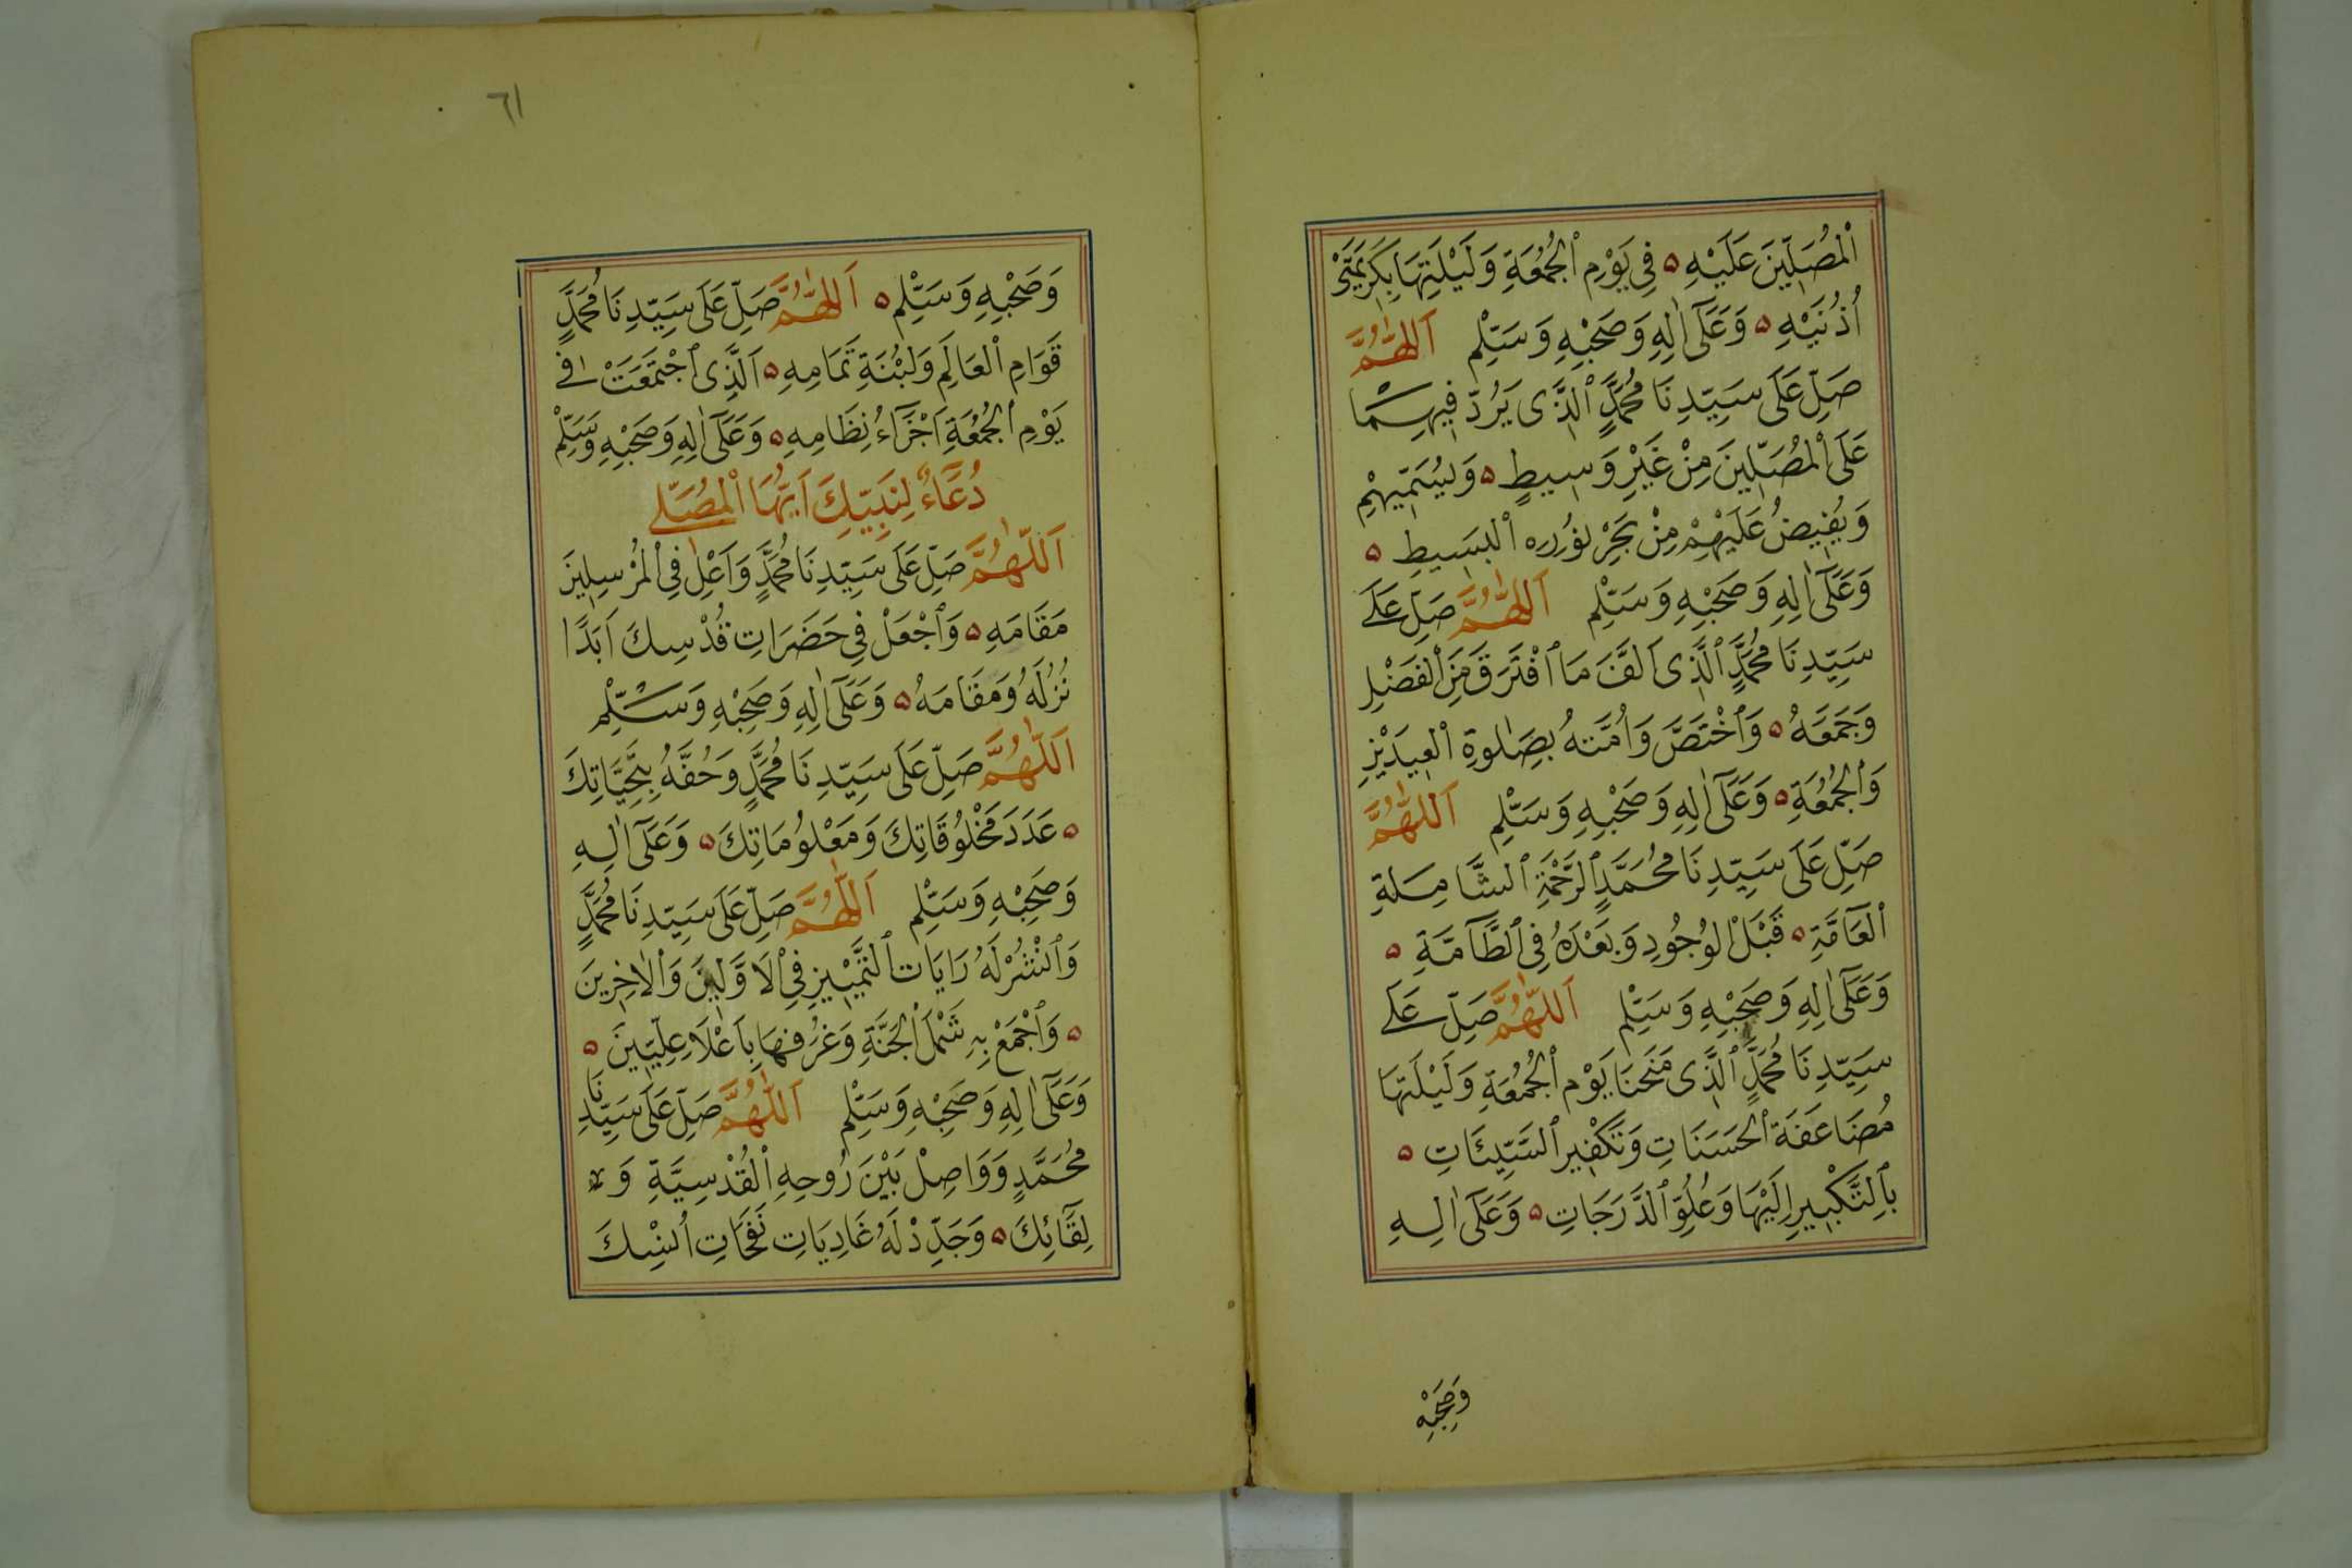 اَلْمُصَلِّينَ عَلَيْهِ ۝ فِي يَوْمِ ٱلْجُمُعَةِ وَلَيْلَتِهَا بِكَرِيمَتَيْ
اُذُنَيْهِ ۝ وَعَلَىٰٓ اٰلِهِ وَصَحْبِهِ وَسَلِّمْ اَللّٰهُمَّ
صَلِّ عَلَى سَيِّدِنَا مُحَمَّدٍ ٱلَّذِى يَرُدّ فِيهِمَا
عَلَى ٱلْمُصَلِّينَ مِنْ غَيْرِ وَسِيطٍ ۝ وَيُسَمِّيهِمْ
وَيُفِيضُ عَلَيْهِمْ مِنْ بَحْرِ نُورِهِ ٱلْبَسِيطِ ۝
وَعَلَىٰٓ اٰلِهِ وَصَحْبِهِ وَسَلِّمْ اَللّٰهُمَّ صَلِّ عَلَى
سَيِّدِنَا مُحَمَّدٍ ٱلَّذِى اَلَّفَ مَا ٱفْتَرَقَ مِنَ ٱلْفَضْلِ
وَجَمَعَهُ ۝ وَٱخْتَصَّ وَاُمَّتهُ بِصَلٰوةِ ٱلْعِيدَيْنِ
وَٱلْجُمُعَةِ ۝ وَعَلَىٰٓ اٰلِهِ وَصَحْبِهِ وَسَلِّمْ اَللّٰهُمَّ
صَلِّ عَلَى سَيِّدِنَا مُحَمَّدٍ ٱلرَّحْمَةِ ٱلشَّامِلَةِ
ٱلْعَآمَّةِ ۝ قَبْلَ ٱلْوُجُودِ وَبَعْدَهُ فِى ٱلطَّآمَّةِ ۝
وَعَلَىٰٓ اٰلِهِ وَصَحْبِهِ وَسَلِّمْ اَللّٰهُمَّ صَلِّ عَلَى
سَيِّدِنَا مُحَمَّدٍ ٱلَّذِى مَنَحْنَا يَوْم ٱلْجُمُعَةِ وَلَيْلَتَهَا
مُضَاعَفَةَ ٱلْحَسَنَاتِ وَتَكْفِير ٱلسَّيِّئَاتِ ۝
بِٱلتَّكْبِيرِ اِلَيْهَا وَعُلُوِّ ٱلدَّرَجَاتِ ۝ وَعَلَىٰٓ اٰلِهِ
وَصَحْبِهِ
٦١
وَصَحْبِهِ وَسَلِّمْ ۝ اَللّٰهُمَّ صَلِّ عَلَى سَيِّدِنَا مُحَمَّدٍ
قَوَامِ ٱلْعَالَمِ وَلَبْنَةِ تَمَامِهِ ۝ اَلَّذِى ٱجْتَمَعَتْ فِي
يَوْمِ ٱلْجُمُعَةِ اَجْزَآءُ نِظَامِهِ ۝ وَعَلَىٰٓ اٰلِهِ وَصَحْبِهِ وَسَلِّمْ
دُعَآءٌ لِنَبِيِّكَ اَيُّهَا ٱلْمُصَلِّى
اَللّٰهُمَّ صَلِّ عَلَى سَيِّدِنَا مُحَمَّدٍ وَاَعْلِ فِي ٱلْمُرْسِلِينَ
مَقَامَهِ ۝ وَٱجْعَلْ فِي حَضَرَاتِ قُدْسِكَ اَبَدًا
نُزُلَهُ وَمَقَامَهُ ۝ وَعَلَىٰٓ اٰلِهِ وَصَحْبِهِ وَسَلِّمْ
اَللّٰهُمَّ صَلِّ عَلَى سَيِّدِنَا مُحَمَّدٍ وَحُفَّهُ بِتَحِيَّاتِكَ
۝ عَدَدَ مَخْلُوقَاتِكَ وَمَعْلُومَاتِكَ ۝ وَعَلَىٰٓ اٰلِهِ
وَصَحْبِهِ وَسَلِّمْ اَللّٰهُمَّ صَلِّ عَلَى سَيِّدِنَا مُحَمَّدٍ
وَٱنْشُرْ لَهُ رَايَات ٱلتَّمْيِيزِ فِي ٱلْاَوَّلِينَ وَٱلْاٰخِرِينَ
۝ وَٱجْمَعْ بِهِ شَمْلَ ٱلْجَنَّةِ وَغُرُفِهَا بِاَعْلَاءِ عِلِّيِّينَ ۝
وَعَلَىٰٓ اٰلِهِ وَصَحْبِهِ وَسَلِّمْ اَللّٰهُمَّ صَلِّ عَلَى سَيِّدِنَا
مُحَمَّدٍ وَوَاصِلْ بَيْنَ رُوحِهِ ٱلْقُدْسِيَّةِ وَ
لِقَآئِكَ ۝ وَجَدِّدْ لَهُ غَادِيَاتِ نَفَحَاتِ اُنْسِكَ